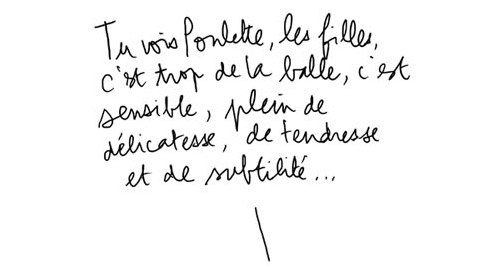 Tu vois Poulette, les filles,
c'est trop de la balle, c'est
sensible, plein de
délicatesse, de tendresse
et de subtilité...